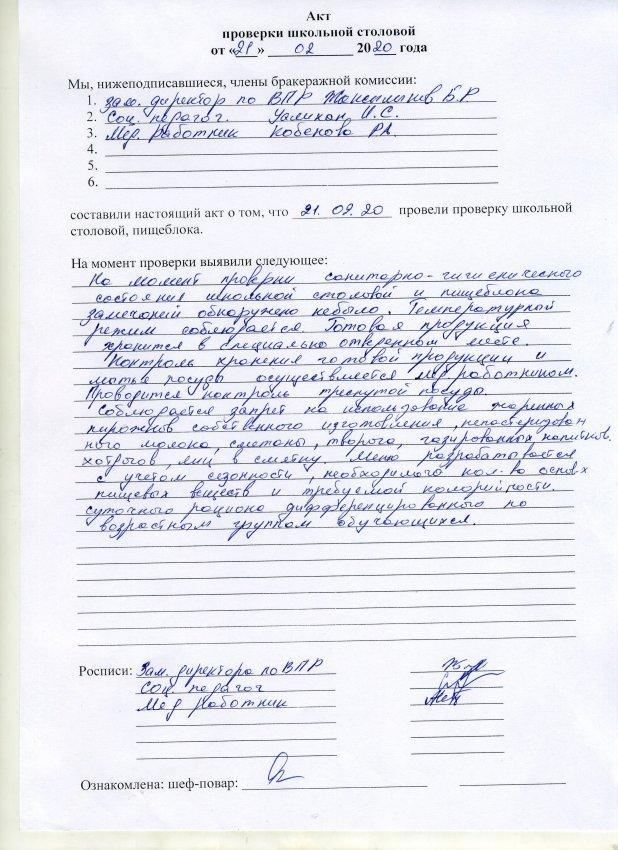 Акт
проверки школьной столовой
от «21» 02 2020 года
Мы, нижеподписавшиеся, члены бракеражной комиссии:
1. Зам. директор по ВПР Б.Р
2. Соц. педагог. Уалихан И.С.
3. Мед. работник Кобенова Р.А.
4.
5.
6.
составили настоящий акт о том, что 21.02.20 провели проверку школьной
столовой, пищеблока.
На момент проверки выявили следующее:
На момент проверки санитарно-гигиенического
состояния школьной столовой и пищеблока
замечаний обнаружено небыло. Температурный
режим соблюдается Готовая продукция
хранится в специально отведенном месте.
Контроль хранения готовой продукции и
мытье посуды осуществляется мед работником.
Проводится контроль треснутой посуды.
Соблюдается запрет на использование жаренных
пирожков собственного изготовления, непастеризован
ного молока, сметаны, творога, газированных напитков.
яиц в сметку. Меню разрабатывается
с учетом сезонности, необходимого кол-ва основ-х
пищевых веществ и требуемой калорийности.
суточного рациона дифференцированного по
возрастным группам обучающихся.
Росписи: Зам. директора по ВПР
Соц. педагог
Мед работник
Ознакомлена: шеф-повар: